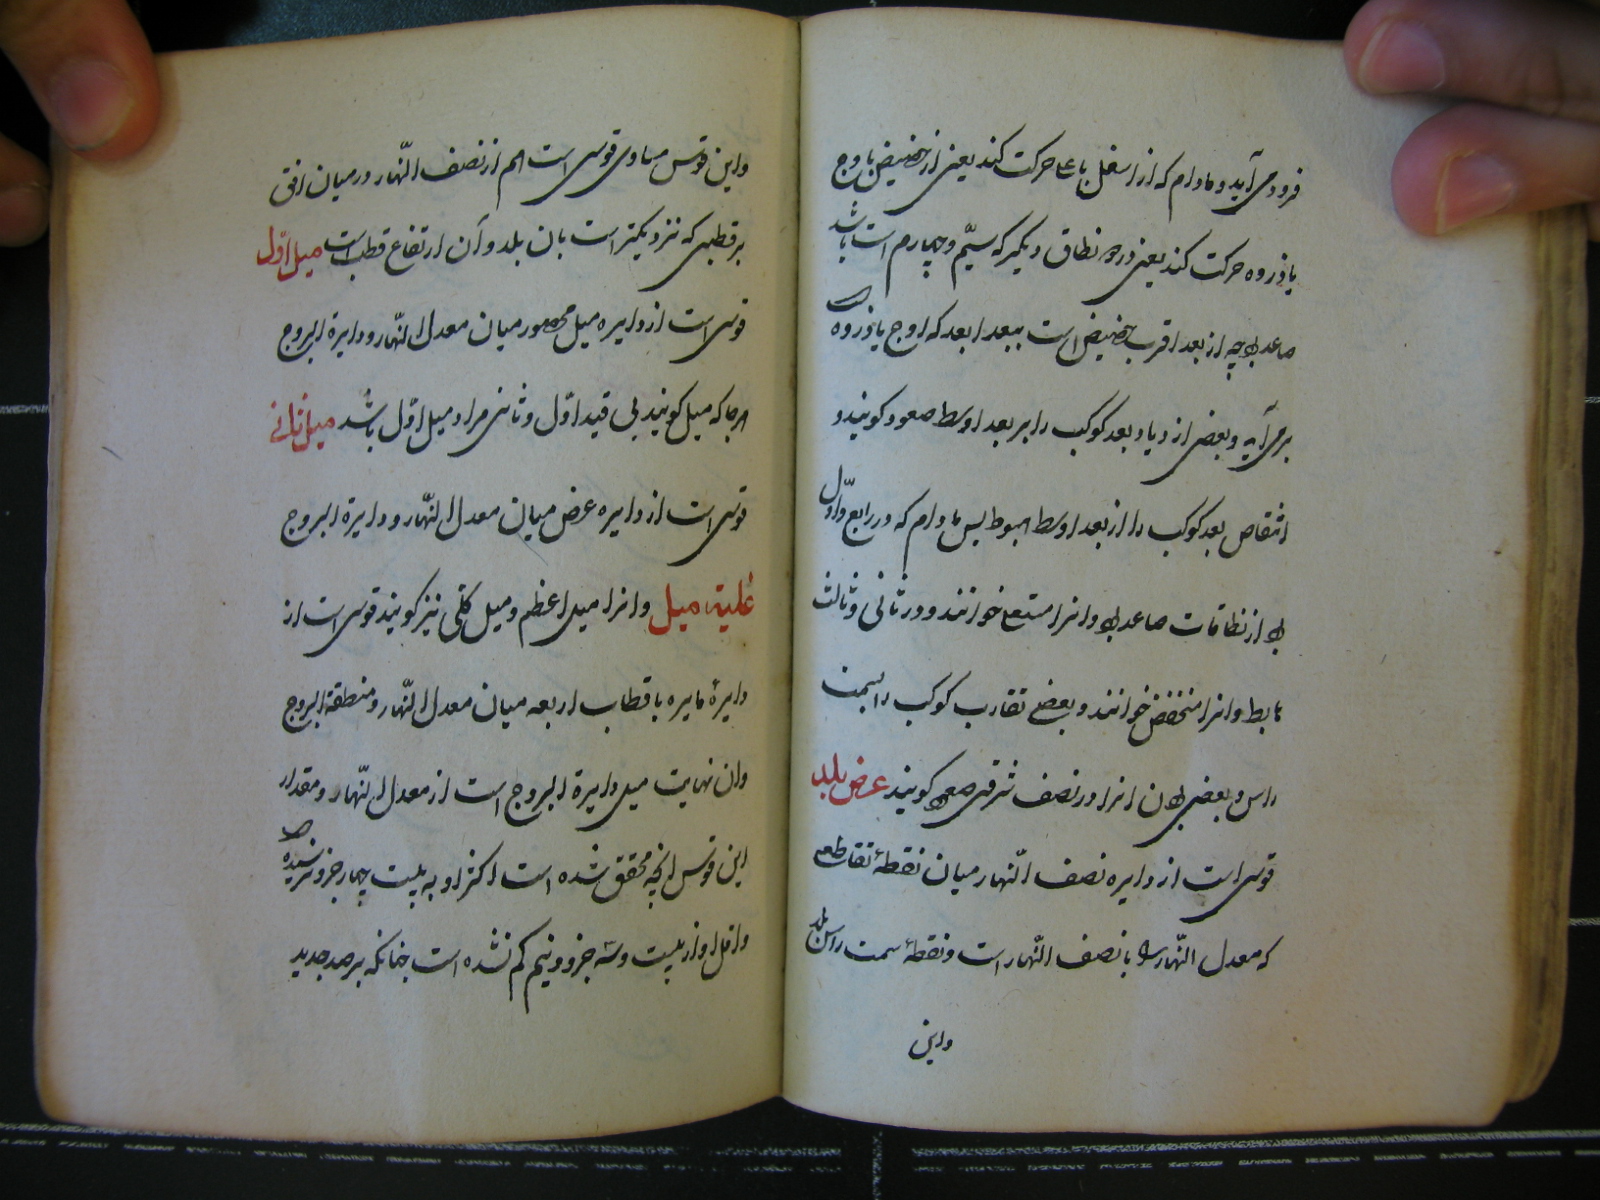 فرود می آید و مادام که از اسفل باعلی حرکت کند یعنی از حضیض باوج
یا ذروه حرکت کند یعنی در دو نطاق دیگر که سیّم و چهارم است باشد
صاعد بود چه از بعد اقرب حضیض است ببعد ابعد که اوج یا ذروه است
برمی آید و بعضی ازدیاد بعد کوکب را بر بعد اوسط صعود گویند و
انتقاص بعد کوکب را از بعد اوسط هبوط پس مادام که در رابع و اوّل
بود از نطاقات صاعد بود و انرا مستعلی خوانند و در ثانی و ثالث
هابط و انرا منخفض خوانند و بعضی تقارب کوکب را بسمت
راس و بعضی بودن انرا در نصف شرقی صعود گویند عرض بلد
قوسی است از دایره نصف النّهار میان نقطهٔ تقاطعی
که معدل النّهار را با نصف النّهار است و نقطهٔ سمت راس بلد
واین
واین قوس مساوی قوسی است هم از نصف النّهار در میان افق
بر قطبی که نزدیکتر است بان بلد و آن ارتفاع قطب است میل اوّل
قوسی است از دایره میل محصور میان معدل النّهار و دایرة البروج
هرجا که میل گویند بی قید اوّل و ثانی مراد میل اوّل باشد میل ثانی
قوسی است از دایره عرض میان معدل النّهار و دایرة البروج
غایة میل و انرا میل اعظم و میل کلّی نیز گویند قوسی است از
دایرهٔ ماره باقطاب اربعه میان معدل النّهار و منطقة البروج
وان نهایت میل دایرة البروج است از معدل النّهار و مقدار
این قوس انچه محقق شده است اکثر او به بیست چهار جزو نرسیده است
و اقل او از بیست و سه جزو و نیم کم نشده است چنانکه برصد جدید